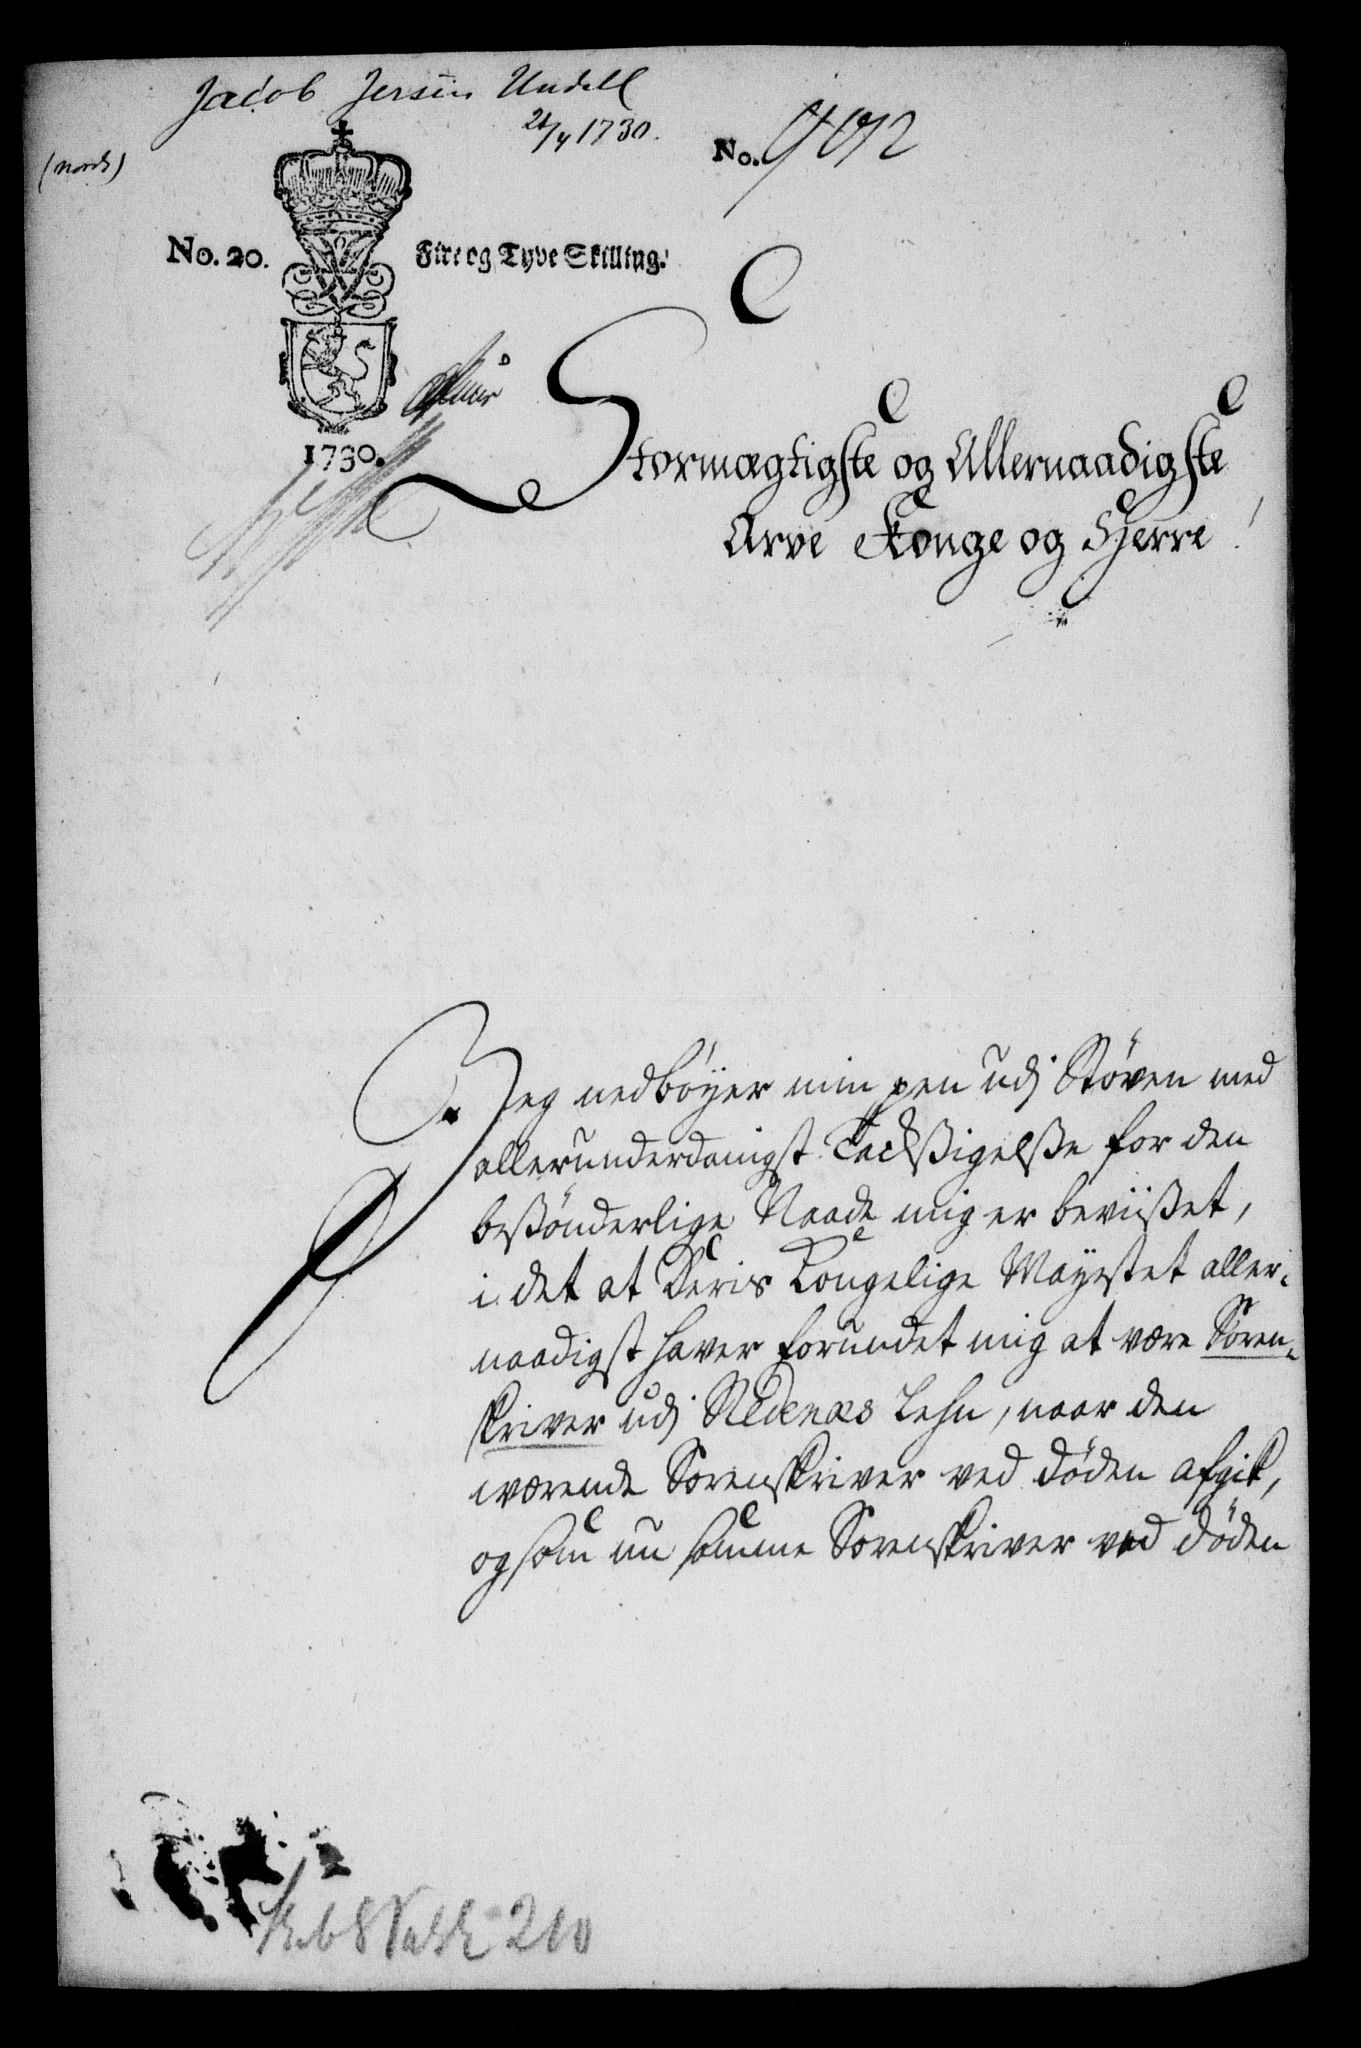 Jacob Jersin Undall
21/4 1730.
(Norsk)
No. 9092
No. 20.
Fire og Tyve Skilling.
1730.
Stormægtigste og Allernaadigste
Arve Konge og Herre!
Jeg nedbøyer min pen udj Støven med
allerunderdanigst Tachsigelsse for den
bessønderlige Naade mig er beviisset,
i det at Deris Kongelige Mayestet aller-
naadigst haver forundet mig at være Soren-
skriver udj Nedenæs Lehn, naar den
værende Sorenskriver ved døden afgik,
og som nu samme Sorenskriver ved døden
210